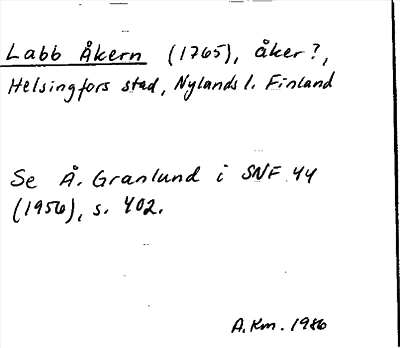 Labb Åkern (1765), åker?,
Helsingfors stad, Nylands l. Finland
Se Å. Granlund i SNF 44
(1956), s. 402.
A.Km. 1986